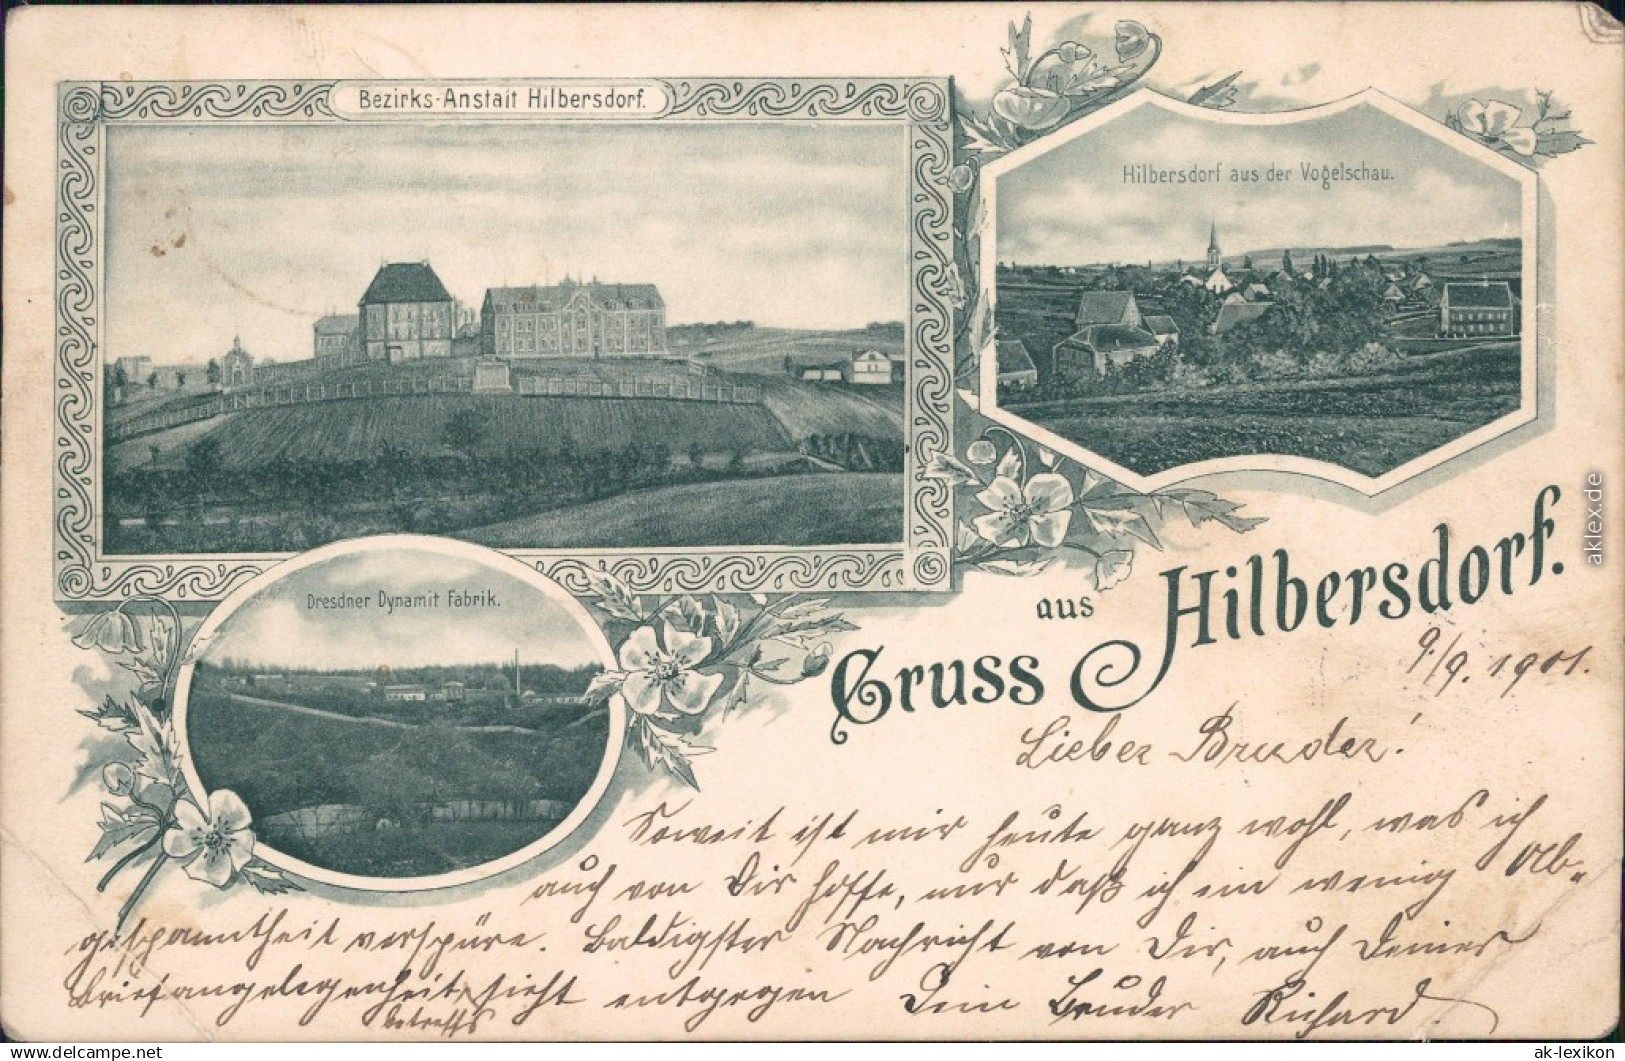 Bezirks-Anstalt Hilbersdorf.
Hilbersdorf aus der Vogelschau.
Dresdner Dynamit Fabrik.
Gruss aus Hilbersdorf.
9./9. 1901.
Lieber Bruder!
Soweit ist mir heute ganz wohl, was ich
auch von Dir hoffe, nur daß ich ein wenig Ab-
gespanntheit verspüre. Baldigster Nachricht von Dir, auch Deiner
Briefangelegenheit betreffs, sieht entgegen Dein Bruder Richard.
aklex.de
www.delcampe.net
ak-lexikon